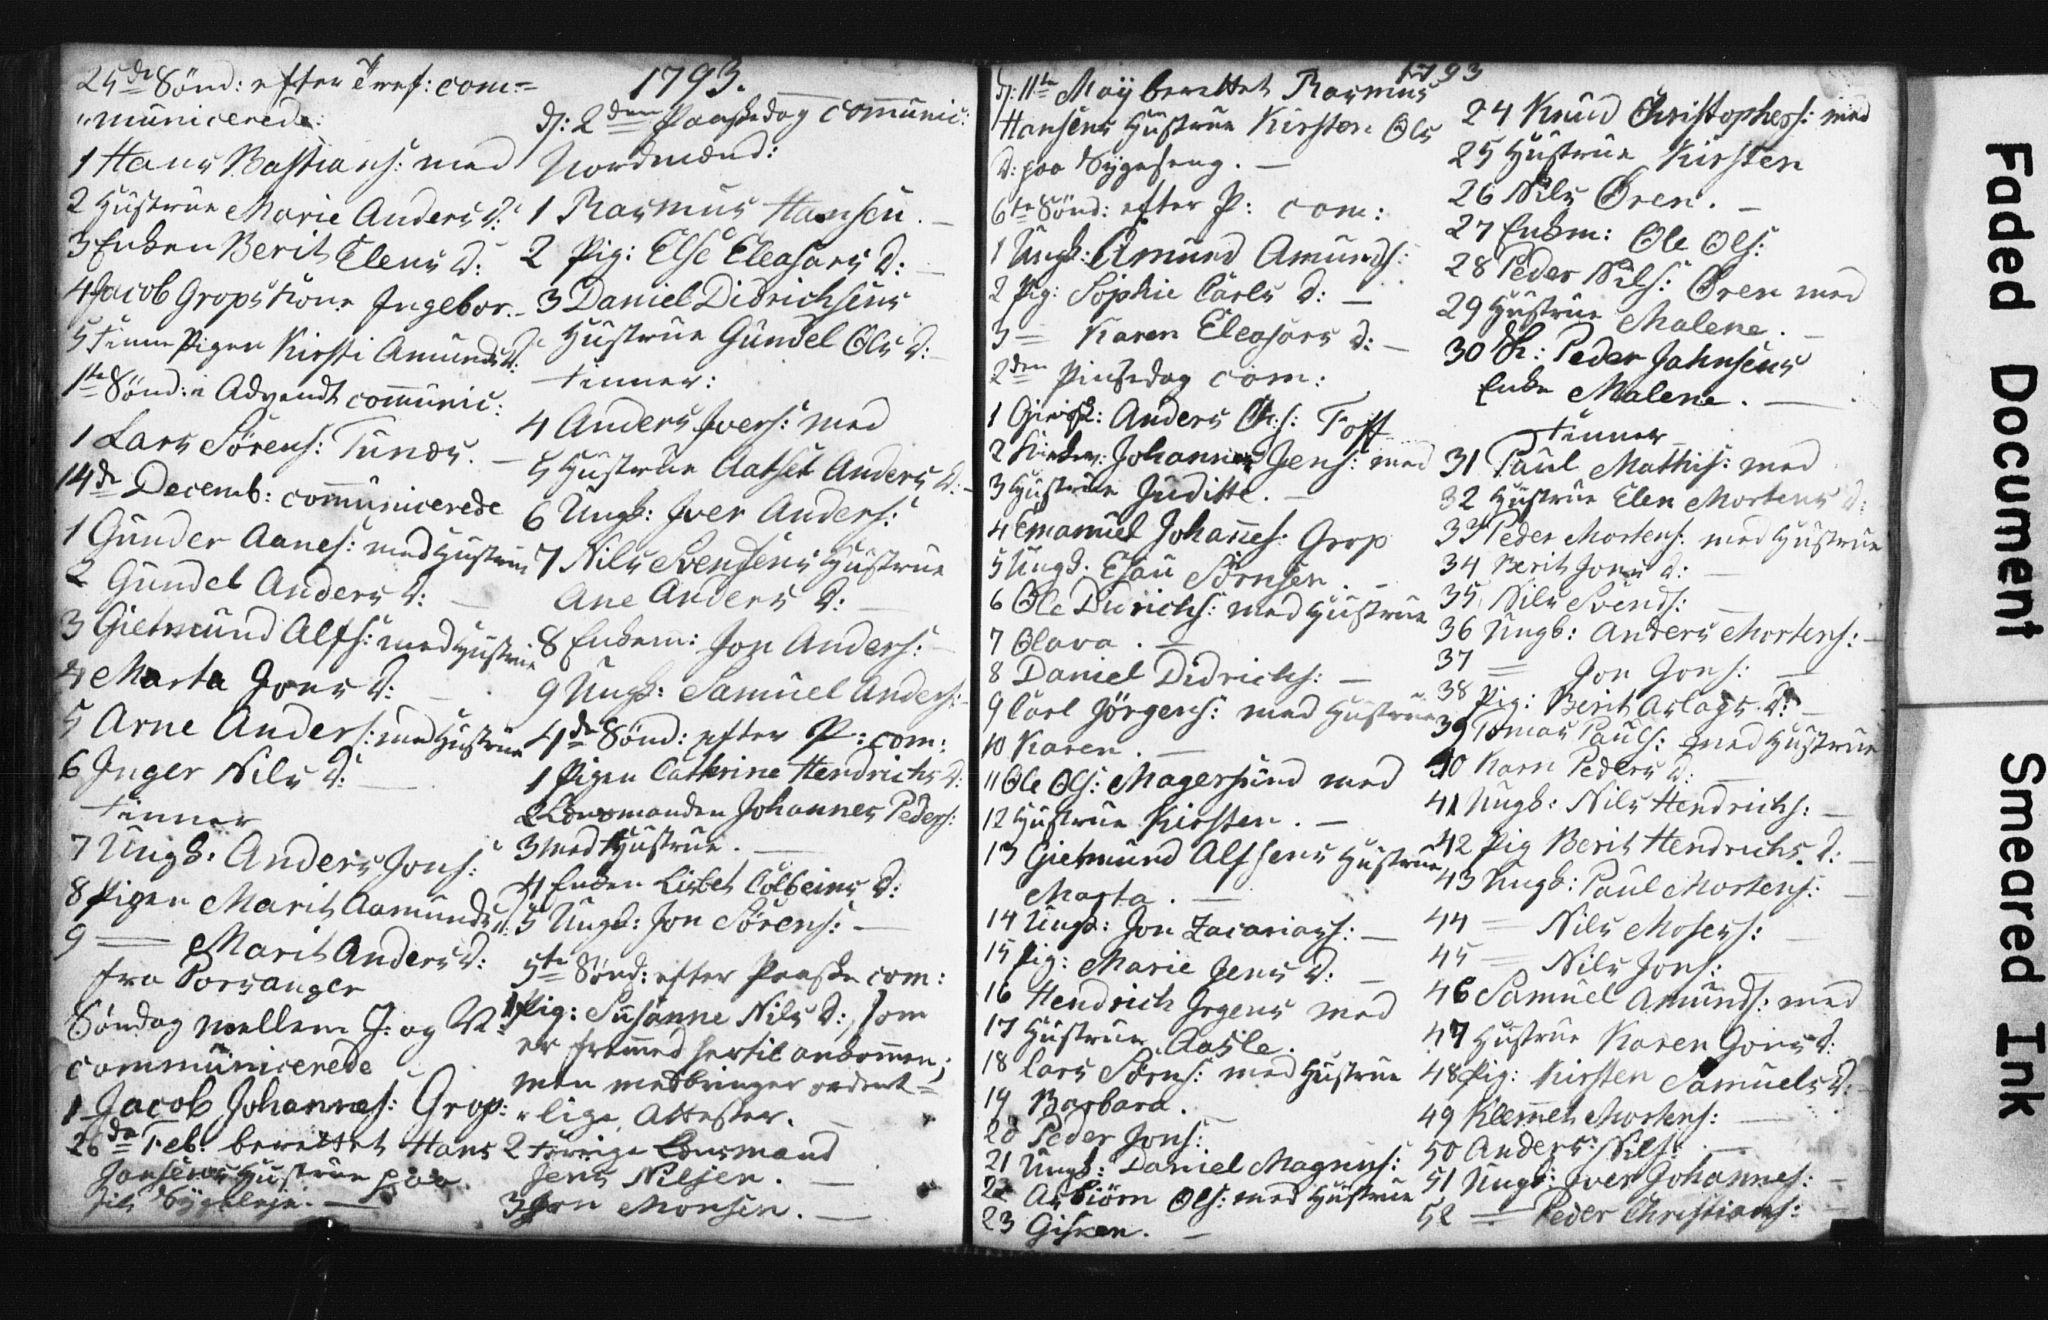 25de Sønd: efter Tref: com=
"municerede:
1 Hans Bastians: med
2 Hustrue Marie Anders D:
3 Enken Berit Elens D:
4 Jacob Grops Kone Ingebor.
5 Finne Pigen Kirsti Amunds D:
1te Sønd: i Advendt com̄unic:
1 Lars Sørens: Tunæs. —
14de Decemb: com̄unicerede
1 Gunder Aanes: med Hustrue
2 Gundel Anders D: —
3 Gietmund Alfs: med Hustrue
4 Marta Jons D: —
5 Arne Anders: med Hustrue
6 Inger Nils D: —
Finner
7 Ungk: Anders Jons:
8 Pigen Marit Aamunds D:
9 — Marit Anders D:
fra Porsanger
Søndag mellem J: og N:
communicerede
1 Jacob Johannes: Grop:
26de Feb: berettet Hans
Jansens Hustrue paa
sin Sygeleje. —
1793.
d: 2den Paaskedag com̄unic:
Nordmænd:
1 Rasmus Hansen. —
2 Pig: Else Eleasars D: —
3 Daniel Didrichsens
Hustrue Gundel Ols D:
Finner:
4 Anders Ivers: med
5 Hustrue Aatset Anders D: —
6 Ungk: Iver Anders:
7 Nils Svendsens Hustrue
Ane Anders D: —
8 Enkem: Jon Anders: —
9 Ungk: Samuel Anders: —
4de Sønd: efter P: com:
1 Pigen Cathrine Hendrichs D:
2 Lensmanden Johannes Peders:
3 med Hustrue. —
4 Enken Lisbet Colbeins D:
5 Ungk: Jon Sørens: —
5te Sønd: efter Paaske com:
1 Pig: Susanne Nils D:, som
er fremmed hertil ankom̄en;
men medbringer ordent=
"lige Attester. —
2 forrige Lensmand
Jens Nilsen. —
3 Jon Monsen. —
1793
d: 11te Maÿ berettet Rasmus
Hansens Hustrue Kirsten Ols
D: paa Sygeseng. —
6te Sønd: efter P: com:
1 Ungk: Amund Amunds:
2 Pig: Sophie Carls D: —
3 = Karen Eleasars D: —
2den Pinsedag com:
1 Gievsk: Anders Ch:s: Toft
2 Kirkev: Johannes Jens: med
3 Hustrue Juditte. —
4 Emanuel Johan̄es: Grop
5 Ungk. Esau Sørnsen. —
6 Ole Didrichs: med Hustrue
7 Olava. —
8 Daniel Didrichs: —
9 Carl Jörgens: med Hustrue
10 Karen. —
11 Ole Ols: Magersund med
12 Hustrue Kirsten. —
13 Gietmund Alfsens Hustrue
Marta. —
14 Ungk: Jon Zacarias: —
15 Pig: Marie Jens D: —
16 Hendrich Jrgens med
17 Hustrue Aasle.
18 Lars Sørns: med Hustrue
19 Barbara.
20 Peder Jons:
21 Ungk: Daniel Magnus:
22 Asbiörn Ols: med Hustrue
23 Gisken. —
24 Knud Christophers: med
25 Hustrue Kirsten
26 Nils Øren. —
27 Enkm: Ole Ols:
28 Peder Nils: Øren med
29 Hustrue Malene. —
30 Sk: Peder Jahnsens
Enke Malene. —
Finner
31 Paul Mathis: med
32 Hustrue Elen Mortens D:
33 Peder Mortens: med Hustrue
34 Berit Jons D: —
35 Nils Svends: —
36 Ungk: Anders Mortens: —
37 = Jon Jons: —
38 Pig: Berit Aslags D: —
39 Tomas Pauls: med Hustrue
40 Karn Peders D: —
41 Ungk: Nils Hendrichs: —
42 Pig Berit Hendrichs D: —
43 Ungk: Paul Mortens: —
44 — Nils Moses: —
45 — Nils Jons:
46 Samuel Amunds: med
47 Hustrue Karen Jons D:
48 Pig: Kirsten Samuels D: —
49 Klem̄et Mortens: —
50 Anders Nils: —
51 Ungk: Iver Johannes: —
52 = Peder Christians: —
Faded Document
Smeared Ink